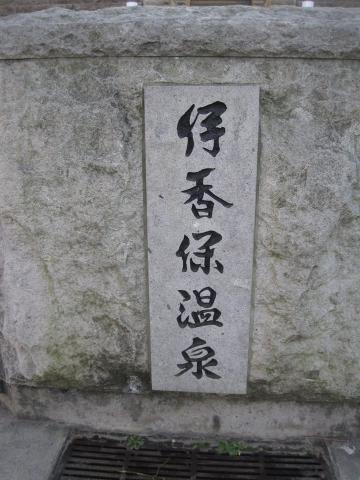 伊香保温泉